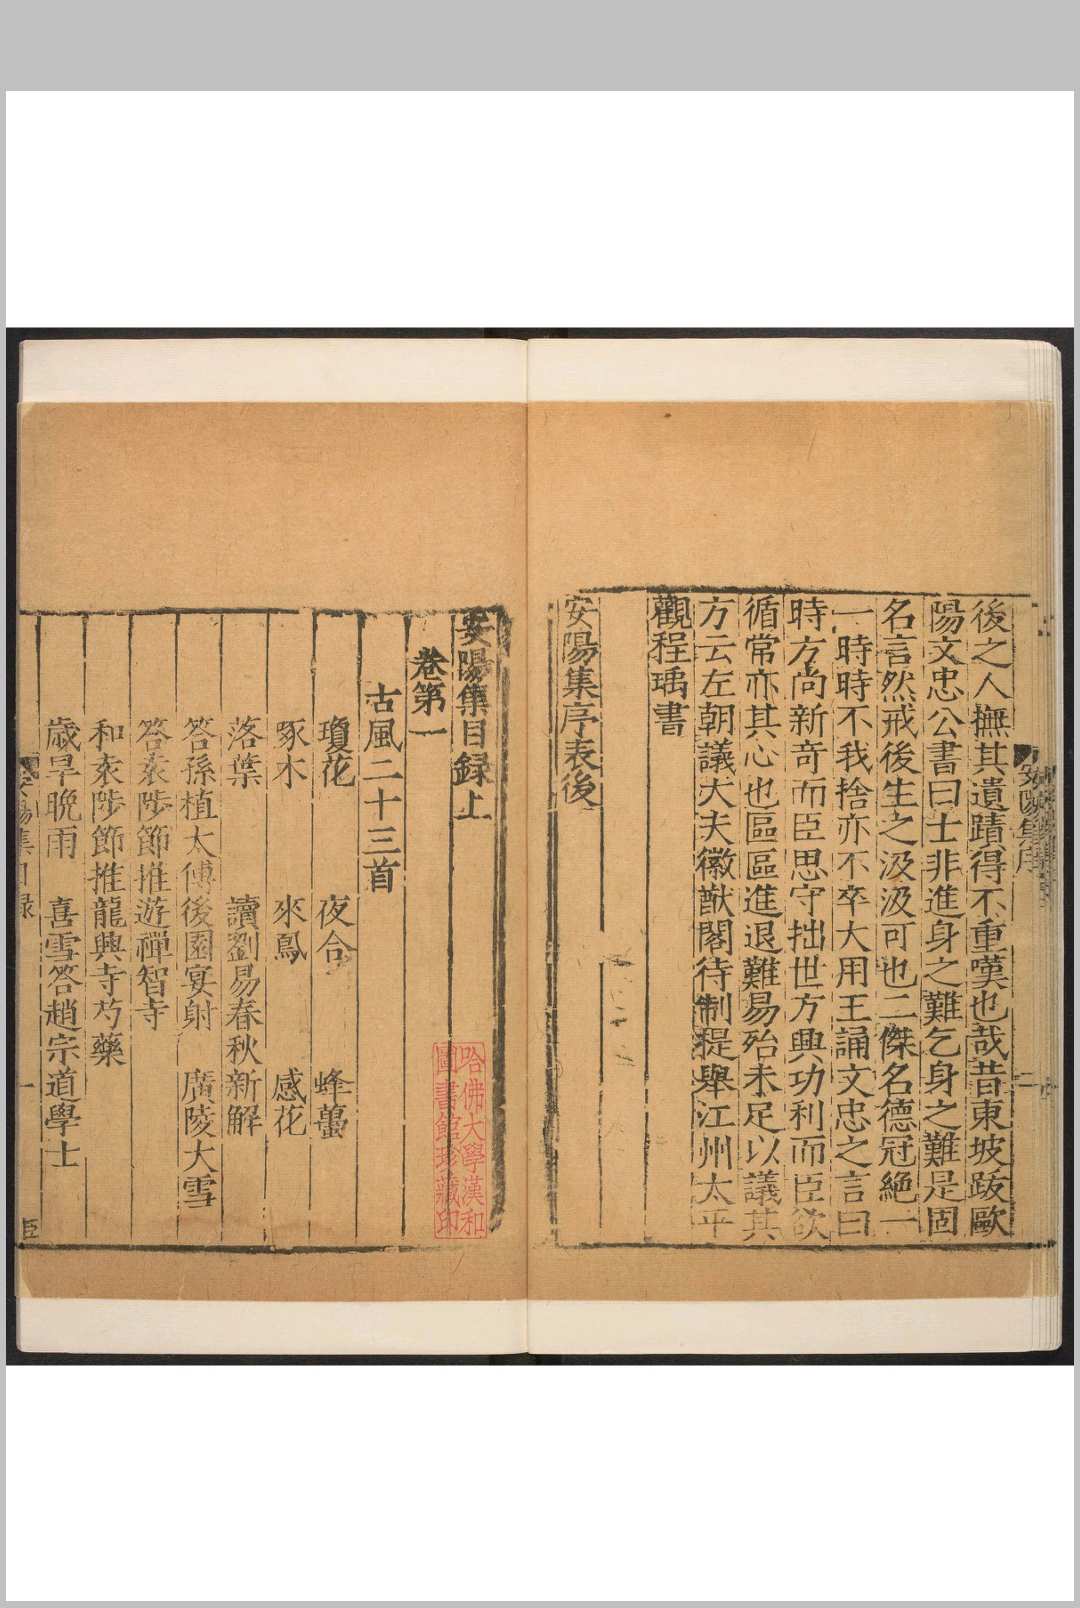 後之人撫其遺蹟得不重嘆也哉昔東坡跋歐
陽文忠公書曰士非進身之難乞身之難是固
名言然戒後生之汲汲可也二傑名德冠絕一
時時不我捨亦不卒大用王誦文忠之言曰
時方尚新奇而臣思守拙世方興功利而臣欲
循常亦其心也區區進退難易殆未足以議其
方云左朝議大夫徽猷閣待制提舉江州太平
觀程瑀書
安陽集序表後
安陽集目録上
卷第一
古風二十三首
瓊花 夜合 蜂蠆
啄木 來鳳 感花
落葉 讀劉易春秋新解
答孫植太傅後園宴射 廣陵大雪
答袁陟節推遊禪智寺
和袁陟節推龍興寺芍藥
歲旱晚雨 喜雪答趙宗道學士
安陽集序
二
安陽集目録
一
哈佛大學漢和
圖書館珍藏印